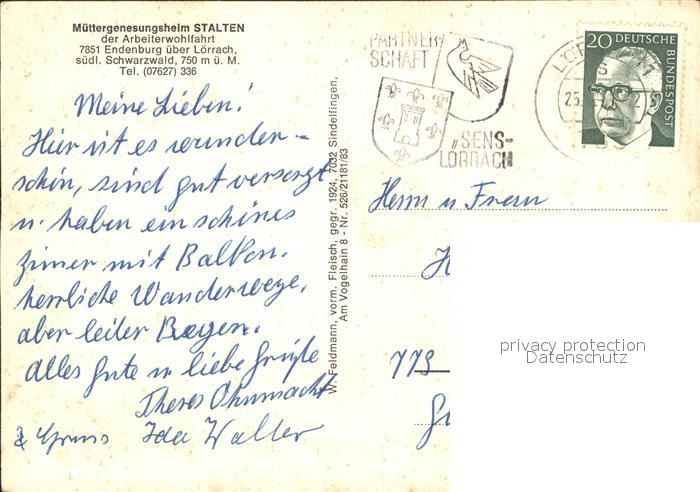 Müttergenesungsheim STALTEN
der Arbeiterwohlfahrt
7851 Endenburg über Lörrach,
südl. Schwarzwald, 750 m ü. M.
Tel. (07627) 336
Meine Lieben!
Hier ist es wunder-
schön, sind gut versorgt
u. haben ein schönes
Zimer mit Balkon.
herrliche Wanderwege,
aber leider Regen.
Alles Gute u liebe Grüße
Theres Ohnmacht
& Gruss Ida Waller
W. Feldmann, vorm. Fleisch, gegr. 1924, 7032 Sindelfingen,
Am Vogelhain 8 - Nr. 526/21181/83
PARTNER-
SCHAFT
"SENS-
LÖRRACH
20 DEUTSCHE BUNDESPOST
Herrn u Frau
H
779
privacy protection
Datenschutz